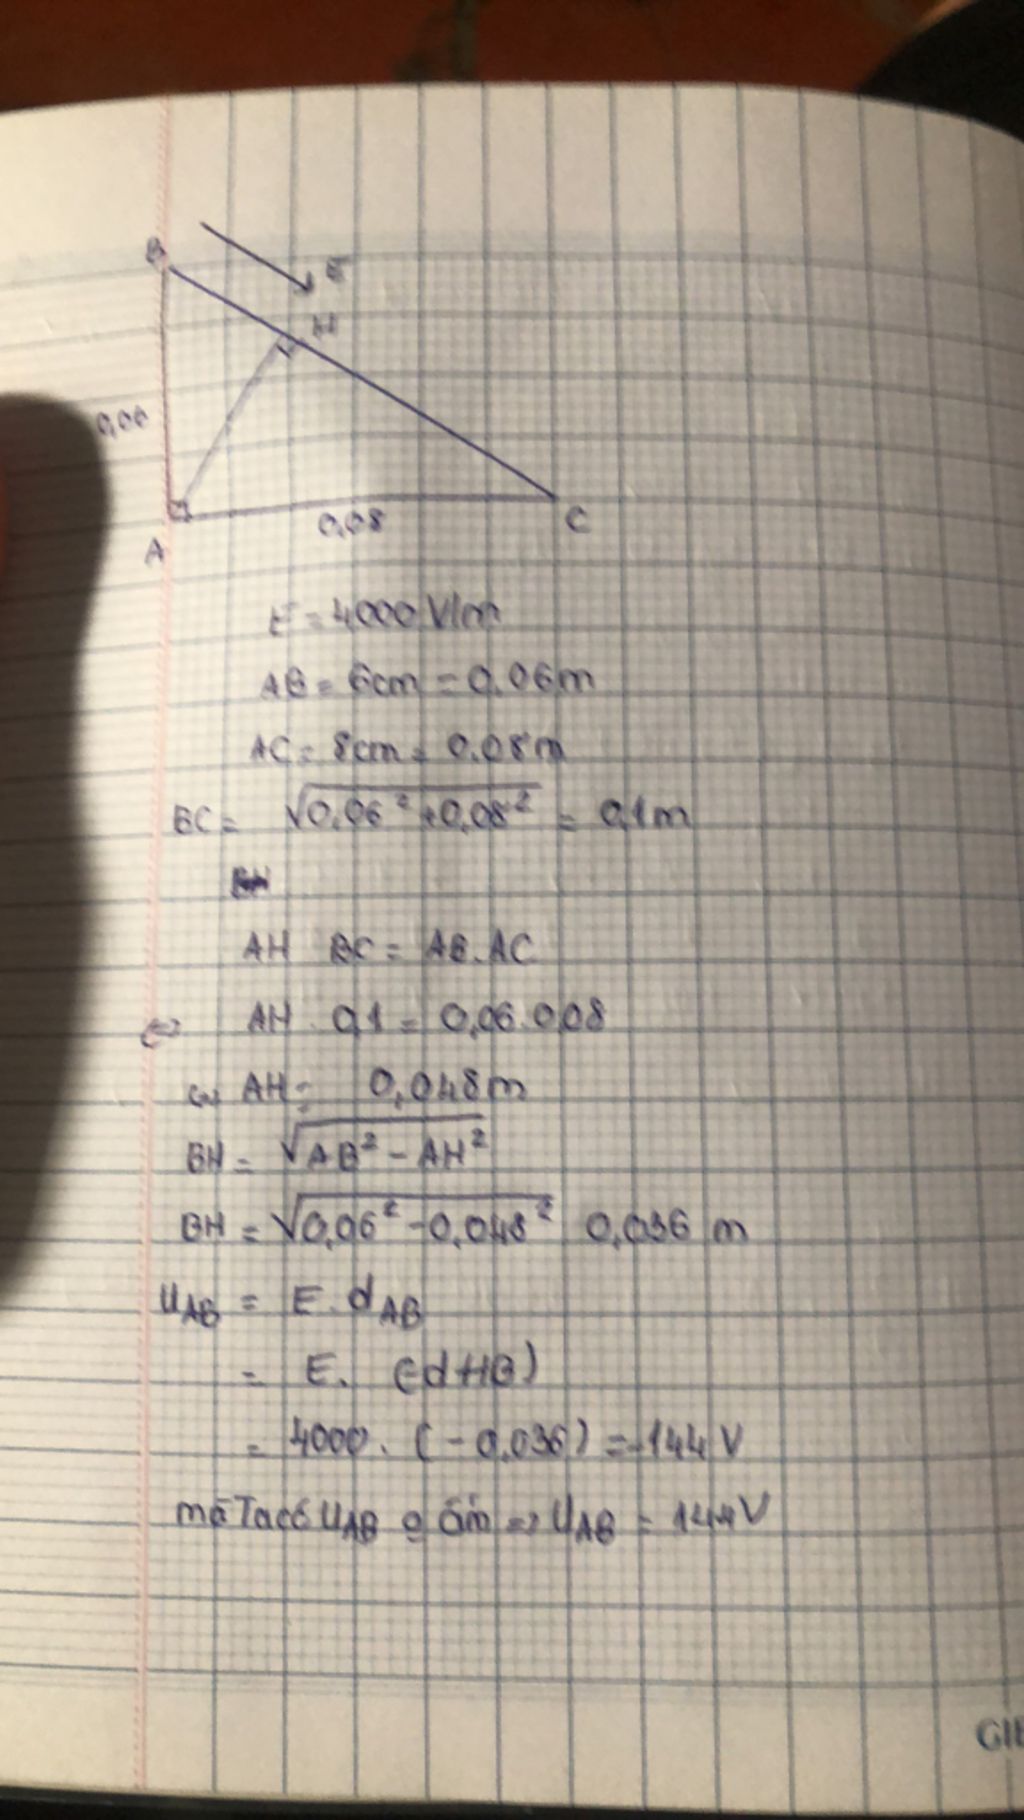 B
E
H
0,06
A
0,08
C
E = 4000 V/m
AB = 6cm = 0.06m
AC = 8cm = 0.08m
BC = √0,06² + 0,08² = 0,1m
AH BC = AB.AC
⇔ AH . 0,1 = 0,06.0,08
⇔ AH = 0,048m
BH = √AB² - AH²
BH = √0,06² - 0,048² 0,036 m
U_AB = E . d_AB
= E. (-dHB)
= 4000. (-0.036) = -144 V
mà Ta có U_AB âm => U_AB = 144V
GIL